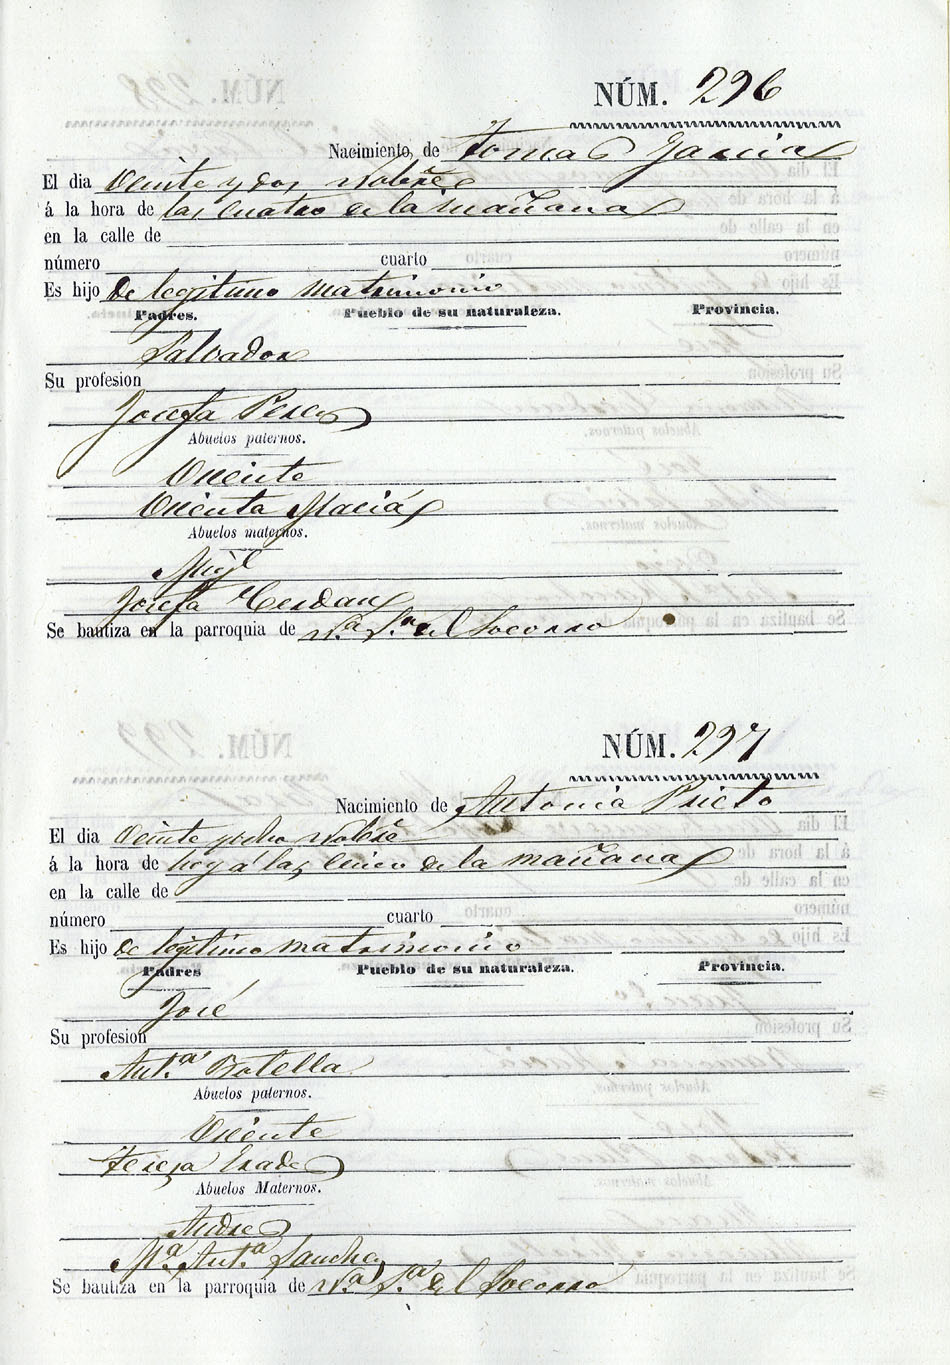 NÚM. 296
Nacimiento, de Tomas Garcia
El dia Veinte y dos Nobre
á la hora de las cuatro de la mañana
en la calle de
número cuarto
Es hijo de legitimo matrimonio
Padres. Pueblo de su naturaleza. Provincia.
Salvador
Su profesion
Josefa Perez
Abuelos paternos.
Vicente
Vicenta Maciá
Abuelos maternos.
Migl
Josefa Cerdan
Se bautiza en la parroquia de N.a S.a del Socorro
NÚM. 297
Nacimiento de Antonia Prieto
El dia Veinte y ocho Nobre
á la hora de hoy á las cinco de la mañana
en la calle de
número cuarto
Es hijo de legitimo matrimonio
Padres Pueblo de su naturaleza. Provincia.
José
Su profesion
Ant.a Botella
Abuelos paternos.
Vicente
Teresa
Abuelos Maternos.
Andres
M.a Ant.a Sanchez
Se bautiza en la parroquia de N.a S.a del Socorro